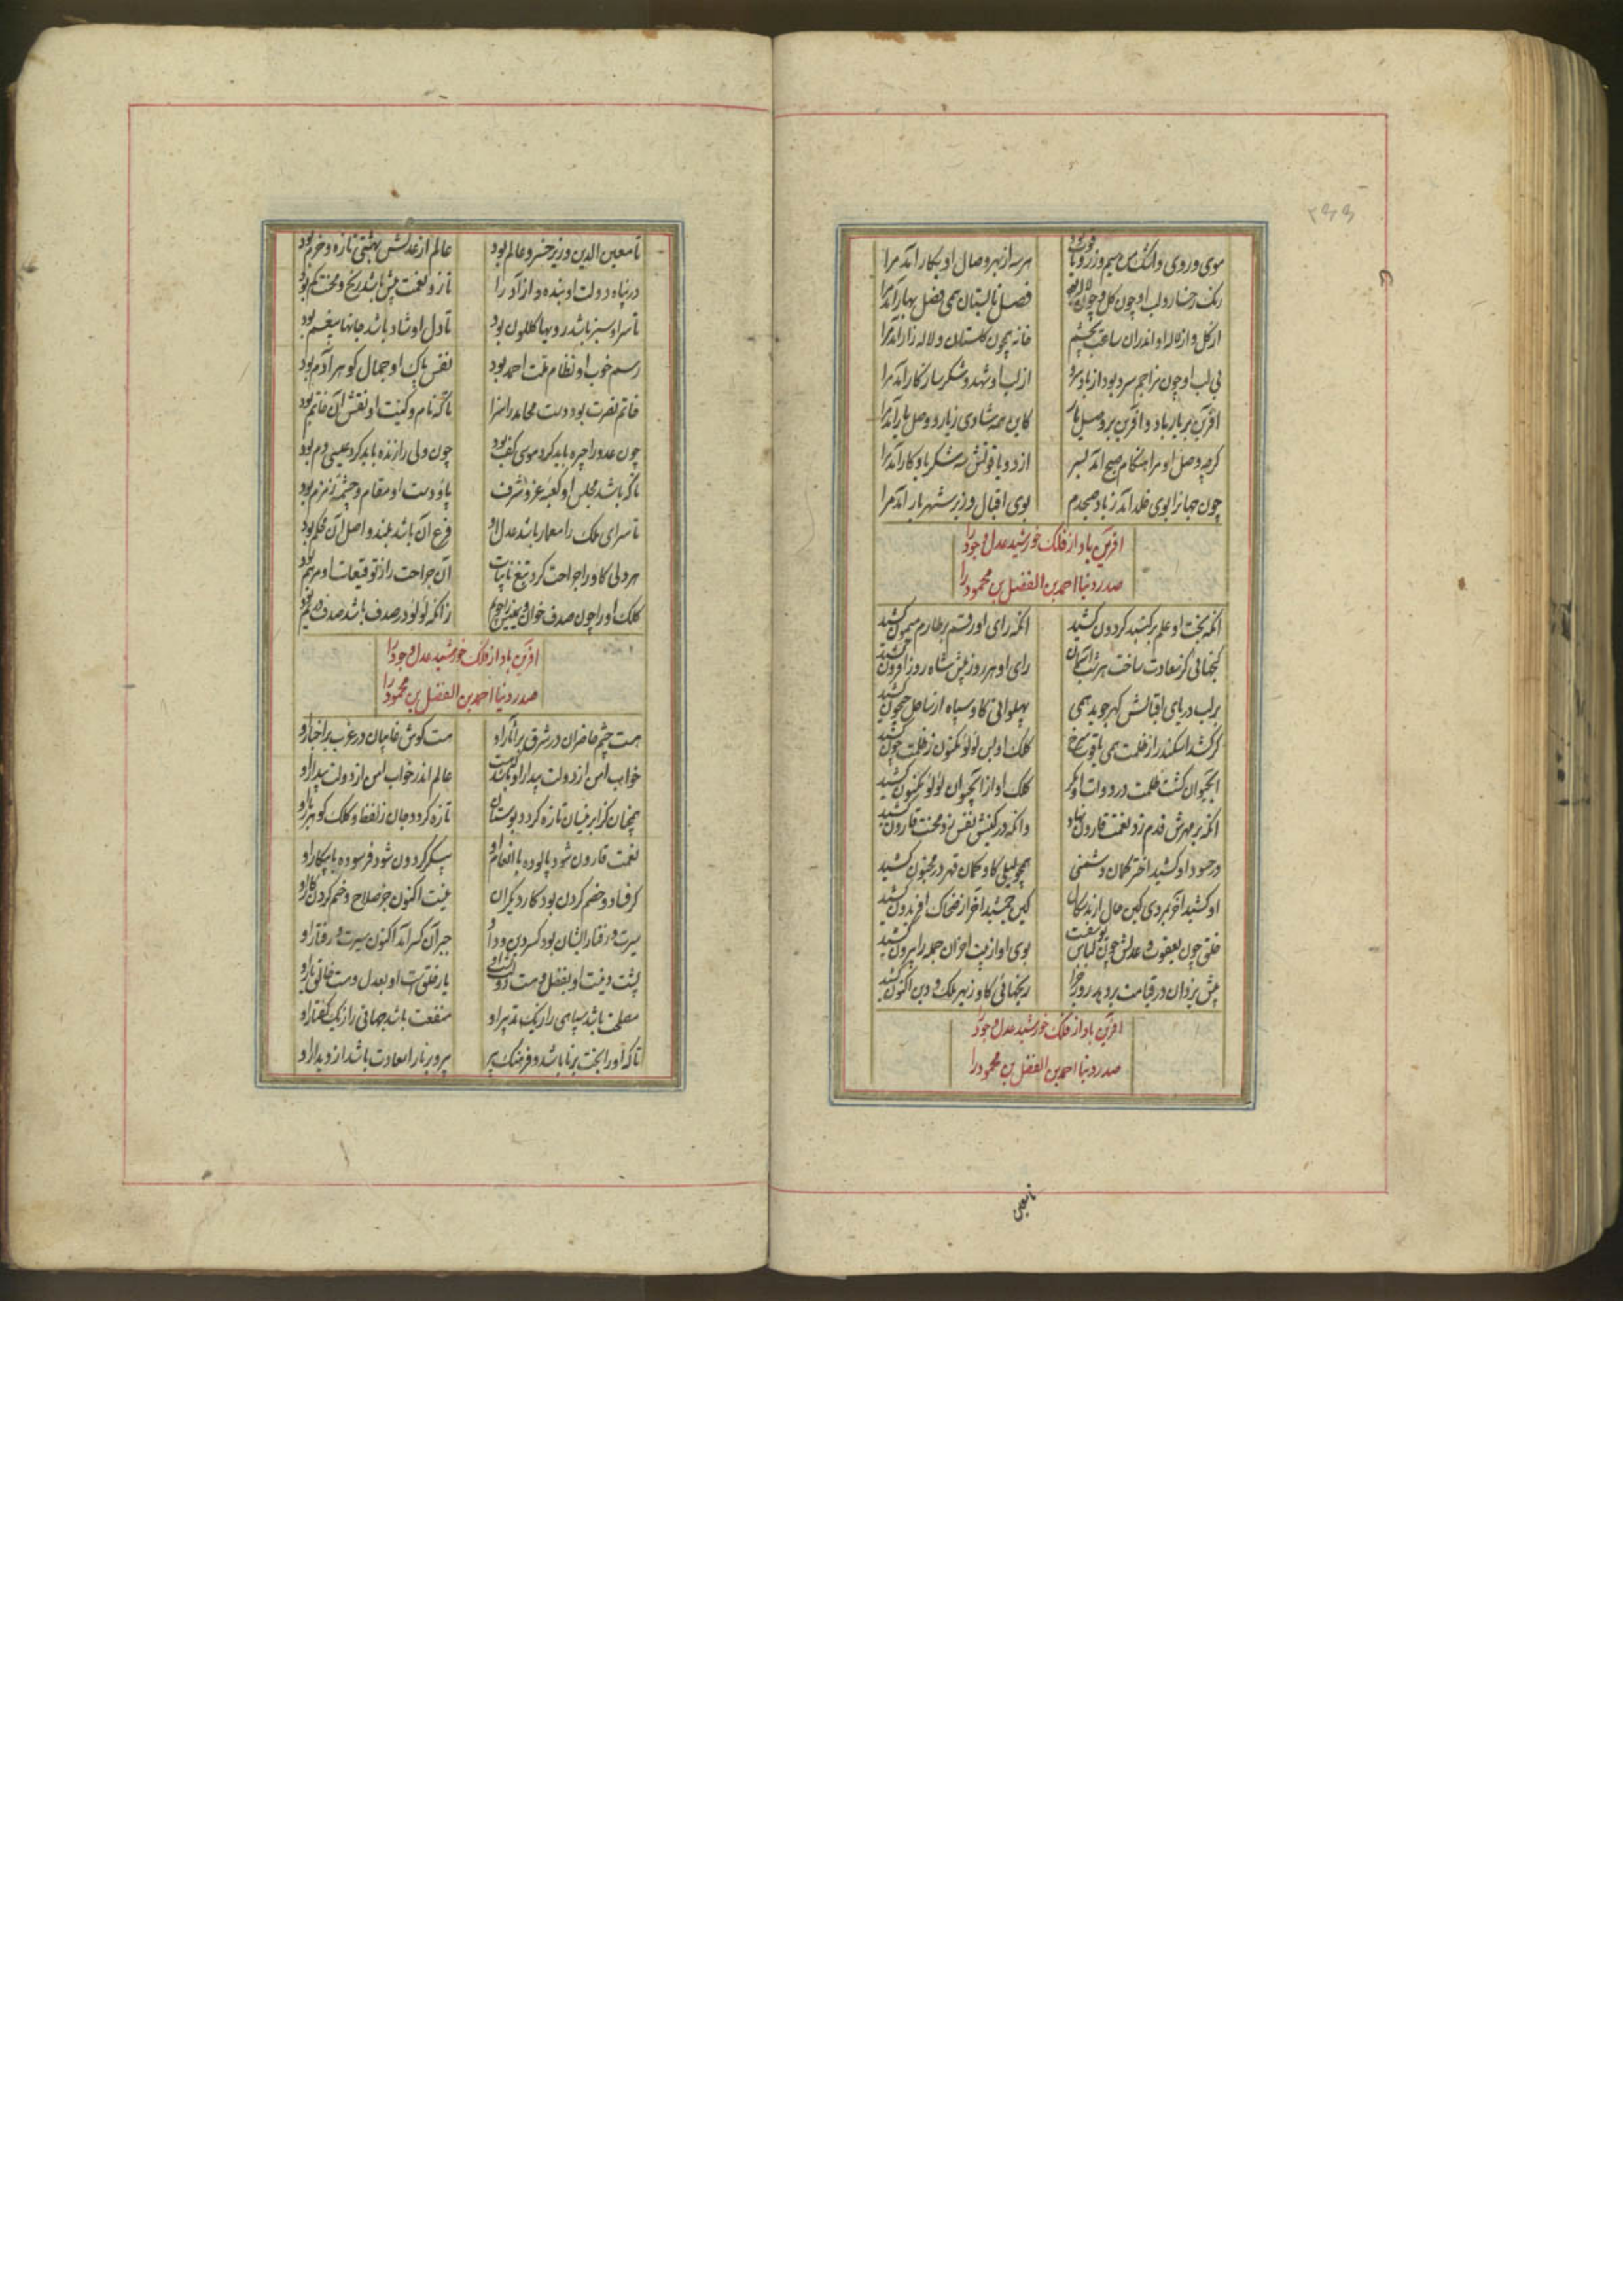 ۲۶۶
موی و روی و اشک من سیم و زر و
هر سه از بهر وصال او بکار آمد مرا
رنک رخسار و لب او چون کل و چون لاله
فصل تابستان همی فصل بهار آمد مرا
از کل و از لاله او اندران ساعت بچشم
خانه همچون کلستان و لاله زار آمد مرا
بی لب او چون مزاجم سرد بود از باد سرد
از لب او شهد و شکر سازکار آمد مرا
آفرین بر یار باد و آفرین بر وصل یار
کاین همه شادی ز یار و وصل یار آمد مرا
کرچه وصل او مرا هنکام صبح آمد بسر
از دو یاقوتش سه شکر یادکار آمد مرا
چون جهانرا بوی خلد آمد ز باد صبحدم
بوی اقبال وزیر شهریار آمد مرا
آفرین باد از فلک خورشید عدل و جود را
صدر دنیا احمد بن الفضل بن محمود را
آنکه بخت او علم بر کنبد کردون کشید
آنکه رای او رقم بر طارم میمون کشید
کنجهائی کز سعادت ساخت هر شب آسمان
رای او هر روز پیش شاه روز افزون کشید
بر لب دریای اقبالش کهر جوید همی
پهلوانی کاو سپاه از ساحل جیحون کشید
کر کشد اسکندر از ظلمت همی یاقوت سرخ
کلک او پس لولو مکنون ز ظلمت چون کشید
آبحیوان کشت ظلمت در دوات او مکر
کلک او از آبحیوان لولو مکنون کشید
آنکه بر مهرش قدم زد نعمت قارون نهاد
وانکه در کینش نفس زد محنت قارون کشید
در حسود او کشید اختر کمان دشمنی
همچو لیلی کاو کمان قهر در مجنون کشید
او کشید آخر بمردی کین حال از بدسکال
کین جمشید آخر از ضحاک افریدون کشید
خلق چون یعقوب و عدلش چون لباس یوسفست
بوی او از بیت احزان جمله را بیرون کشید
پیش یزدان در قیامت بر دهد روز جزا
رنجهائی کاو ز بهر ملک و دین اکنون کشید
آفرین باد از فلک خورشید عدل و جود را
صدر دنیا احمد بن الفضل بن محمود را
تا معین
تا معین الدین وزیر خسرو عالم بود
عالم از عدلش بهشتی تازه و خرم بود
در پناه دولت او بنده و آزاد را
ناز و نعمت بیش باشد رنج و محنت کم بود
تا سر او سبز باشد رویها کلکون بود
تا دل او شاد باشد جانها بیغم بود
رسم خوب او نظام ملت احمد بود
نفس پاک او جمال کوهر آدم بود
خاتم نصرت بود دست محامد را سزا
تا که نام و کنیت او نقش آن خاتم بود
چون عدو را چیره باید کرد موسی کف بود
چون ولی را زنده باید کرد عیسی دم بود
تا که باشد مجلس او کعبه عز و شرف
پا و دست او مقام و چشمه زمزم بود
تا سرای ملک را معمار باشد عدل او
فرع آن باشد بلند و اصل آن محکم بود
هر دلی کاو را جراحت کرد تیغ نایبات
آن جراحت را ز توقیعات او مرهم بود
کلک او را چون صدف خوان و یمینش را چو یم
زانکه لولو در صدف باشد صدف در یم بود
آفرین باد از فلک خورشید عدل و جود را
صدر دنیا احمد بن الفضل بن محمود را
هست چشم حاضران در شرق بر آثار او
هست کوش غایبان در غرب بر اخبار او
خواب امن از دولت بیدار او
عالم اندر خواب امن از دولت بیدار او
همچنان کز ابر نیسان تازه کردد بوستان
تازه کردد جان ز لفظ و کلک کوهر بار او
نعمت قارون شود پالوده با انعام او
پیکر کردون شود فرسوده با پیکار او
کر فساد و خصم کردن بود کار دیکران
نیست اکنون جز صلاح و خصم کردن کار او
سیرت و رفتار ایشان بود کسر دین و داد
جبر آن کسر آمد اکنون سیرت و رفتار او
پشت دینست او بفضل و هست
یار خلقست او بعدل و هست خالق یار او
مصلحت باشد سپاهی را ز یک تدبیر او
منفعت باشد جهانی را ز یک کفتار او
تا که او را بخت برنا باشد و فرهنک پیر
پیر و برنا را سعادت باشد از دیدار او